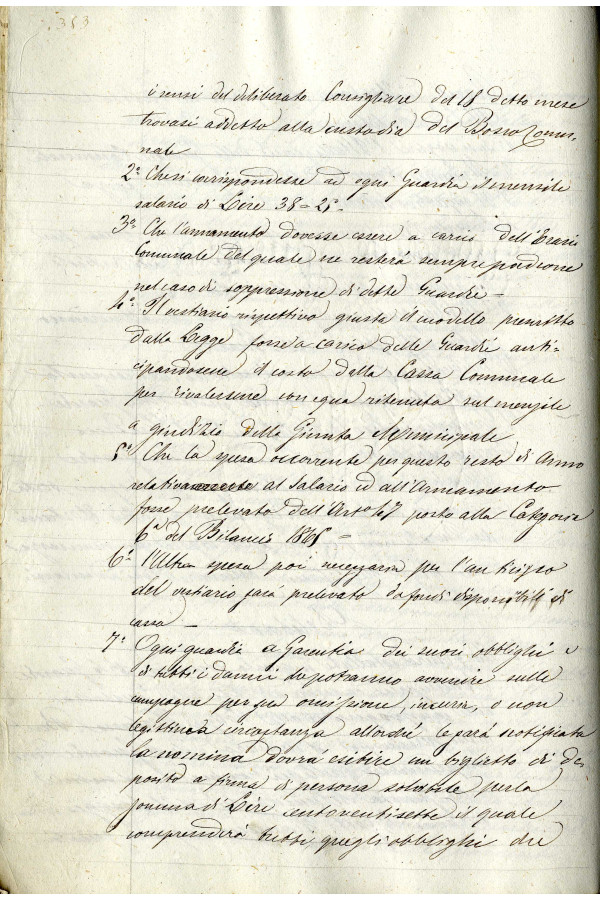 353
i sensi del deliberato Consigliare del 18 detto mese
trovasi addetto alla custodia del Bosco Comu-
nale
2° Che si corrispondesse ad ogni Guardia il mensile
salario di Lire 38=25-
3° Che l'armamento dovesse essere a carico dell'Erario
Comunale del quale ne resterà sempre padrone
nel caso di soppressione di dette Guardie -
4° Il vestiario rispettivo giusta il modello prescritto
dalla Legge fosse a carico delle Guardie anti-
cipandosene il costo dalla Cassa Comunale
per rivalersene con equa ritenuta sul mensile
a giudizio della Giunta Municipale
5° Che la spesa occorrente per questo resto di Anno
relativamente al Salario ed all'Armamento
fosse prelevato dell'Art° 47 porto alla Categoria
6ª del Bilancio 1865 =
6° l'Altra spesa poi necessaria per l'anticipo
del vestiario sarà prelevato da fondi disponibili di
cassa -
7° Ogni guardia a Garentia dei suoi obblighi e
di tutti i danni che potranno avvenire sulle
campagne per sua omissione, incuria, o non
legittima circostanza allorché le sarà notificata
la nomina dovrà esibire un biglietto di de-
posito a firma di persona solvibile per la
somma di Lire centoventisette il quale
comprenderà tutti quegli obblighi che